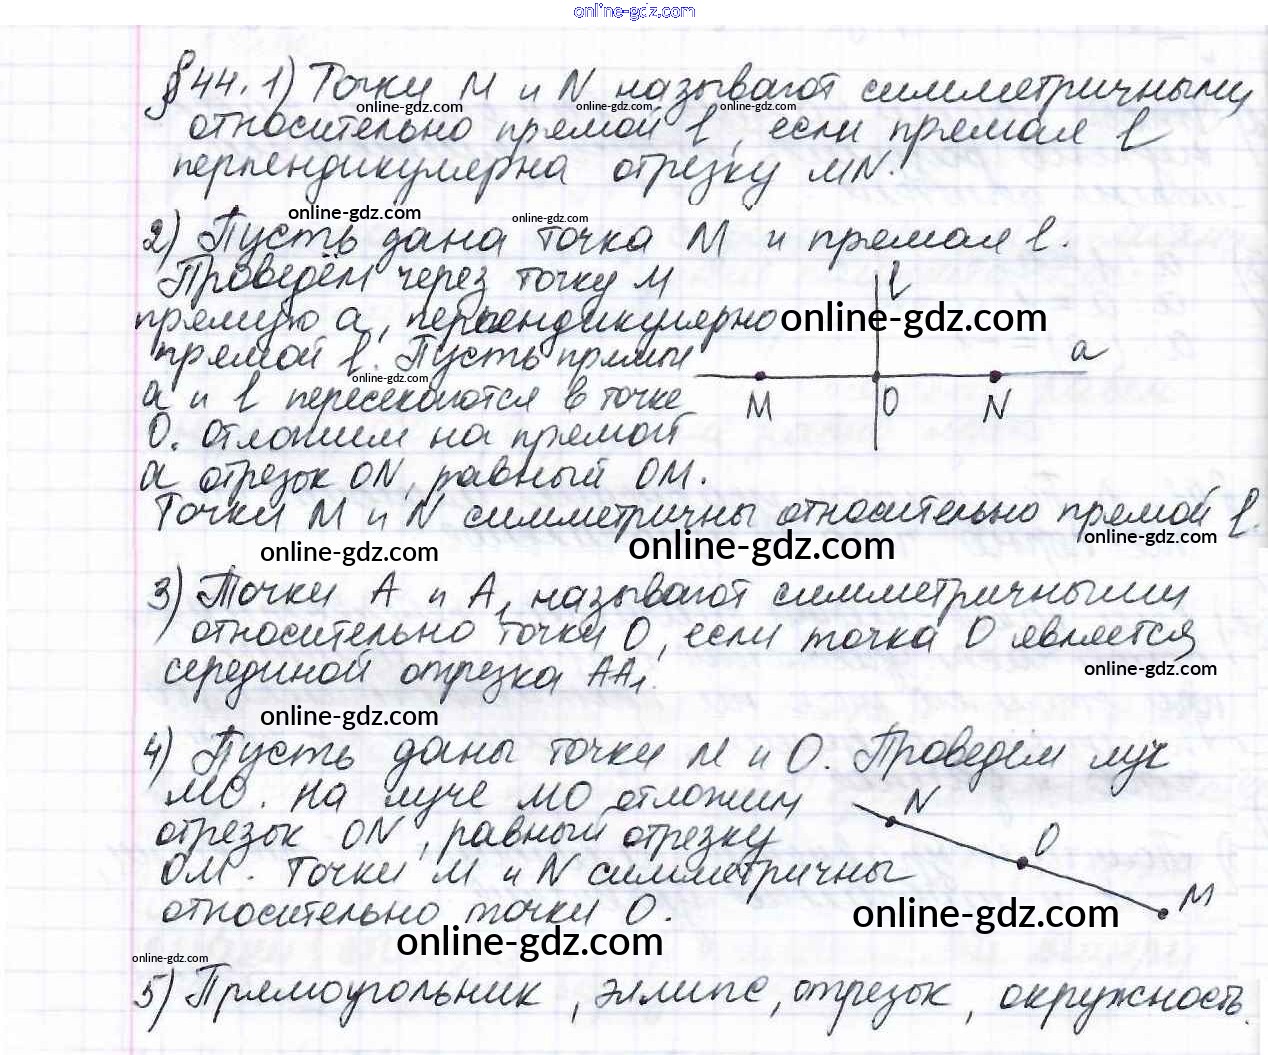 online-gdz.com
§44. 1) Точки M и N называют симметричными
online-gdz.com online-gdz.com online-gdz.com
относительно прямой l, если прямая l
перпендикулярна отрезку MN.
online-gdz.com online-gdz.com
2) Пусть дана точка M и прямая l.
Проведём через точку M
l
прямую a, перпендикулярно
online-gdz.com
прямой l. Пусть прямые
a
online-gdz.com
a и l пересекаются в точке
M O N
O. отложим на прямой
a отрезок ON, равный OM.
Точки M и N симметричны относительно прямой l.
online-gdz.com online-gdz.com online-gdz.com
3) Точки A и A₁ называют симметричными
относительно точки O, если точка O является
online-gdz.com
серединой отрезка AA₁.
online-gdz.com
4) Пусть даны точки M и O. Проведём луч
MO. На луче MO отложим
N
отрезок ON, равный отрезку
O
OM. Точки M и N симметричны
M
относительно точки O.
online-gdz.com
online-gdz.com
online-gdz.com
5) Прямоугольник, эллипс, отрезок, окружность.